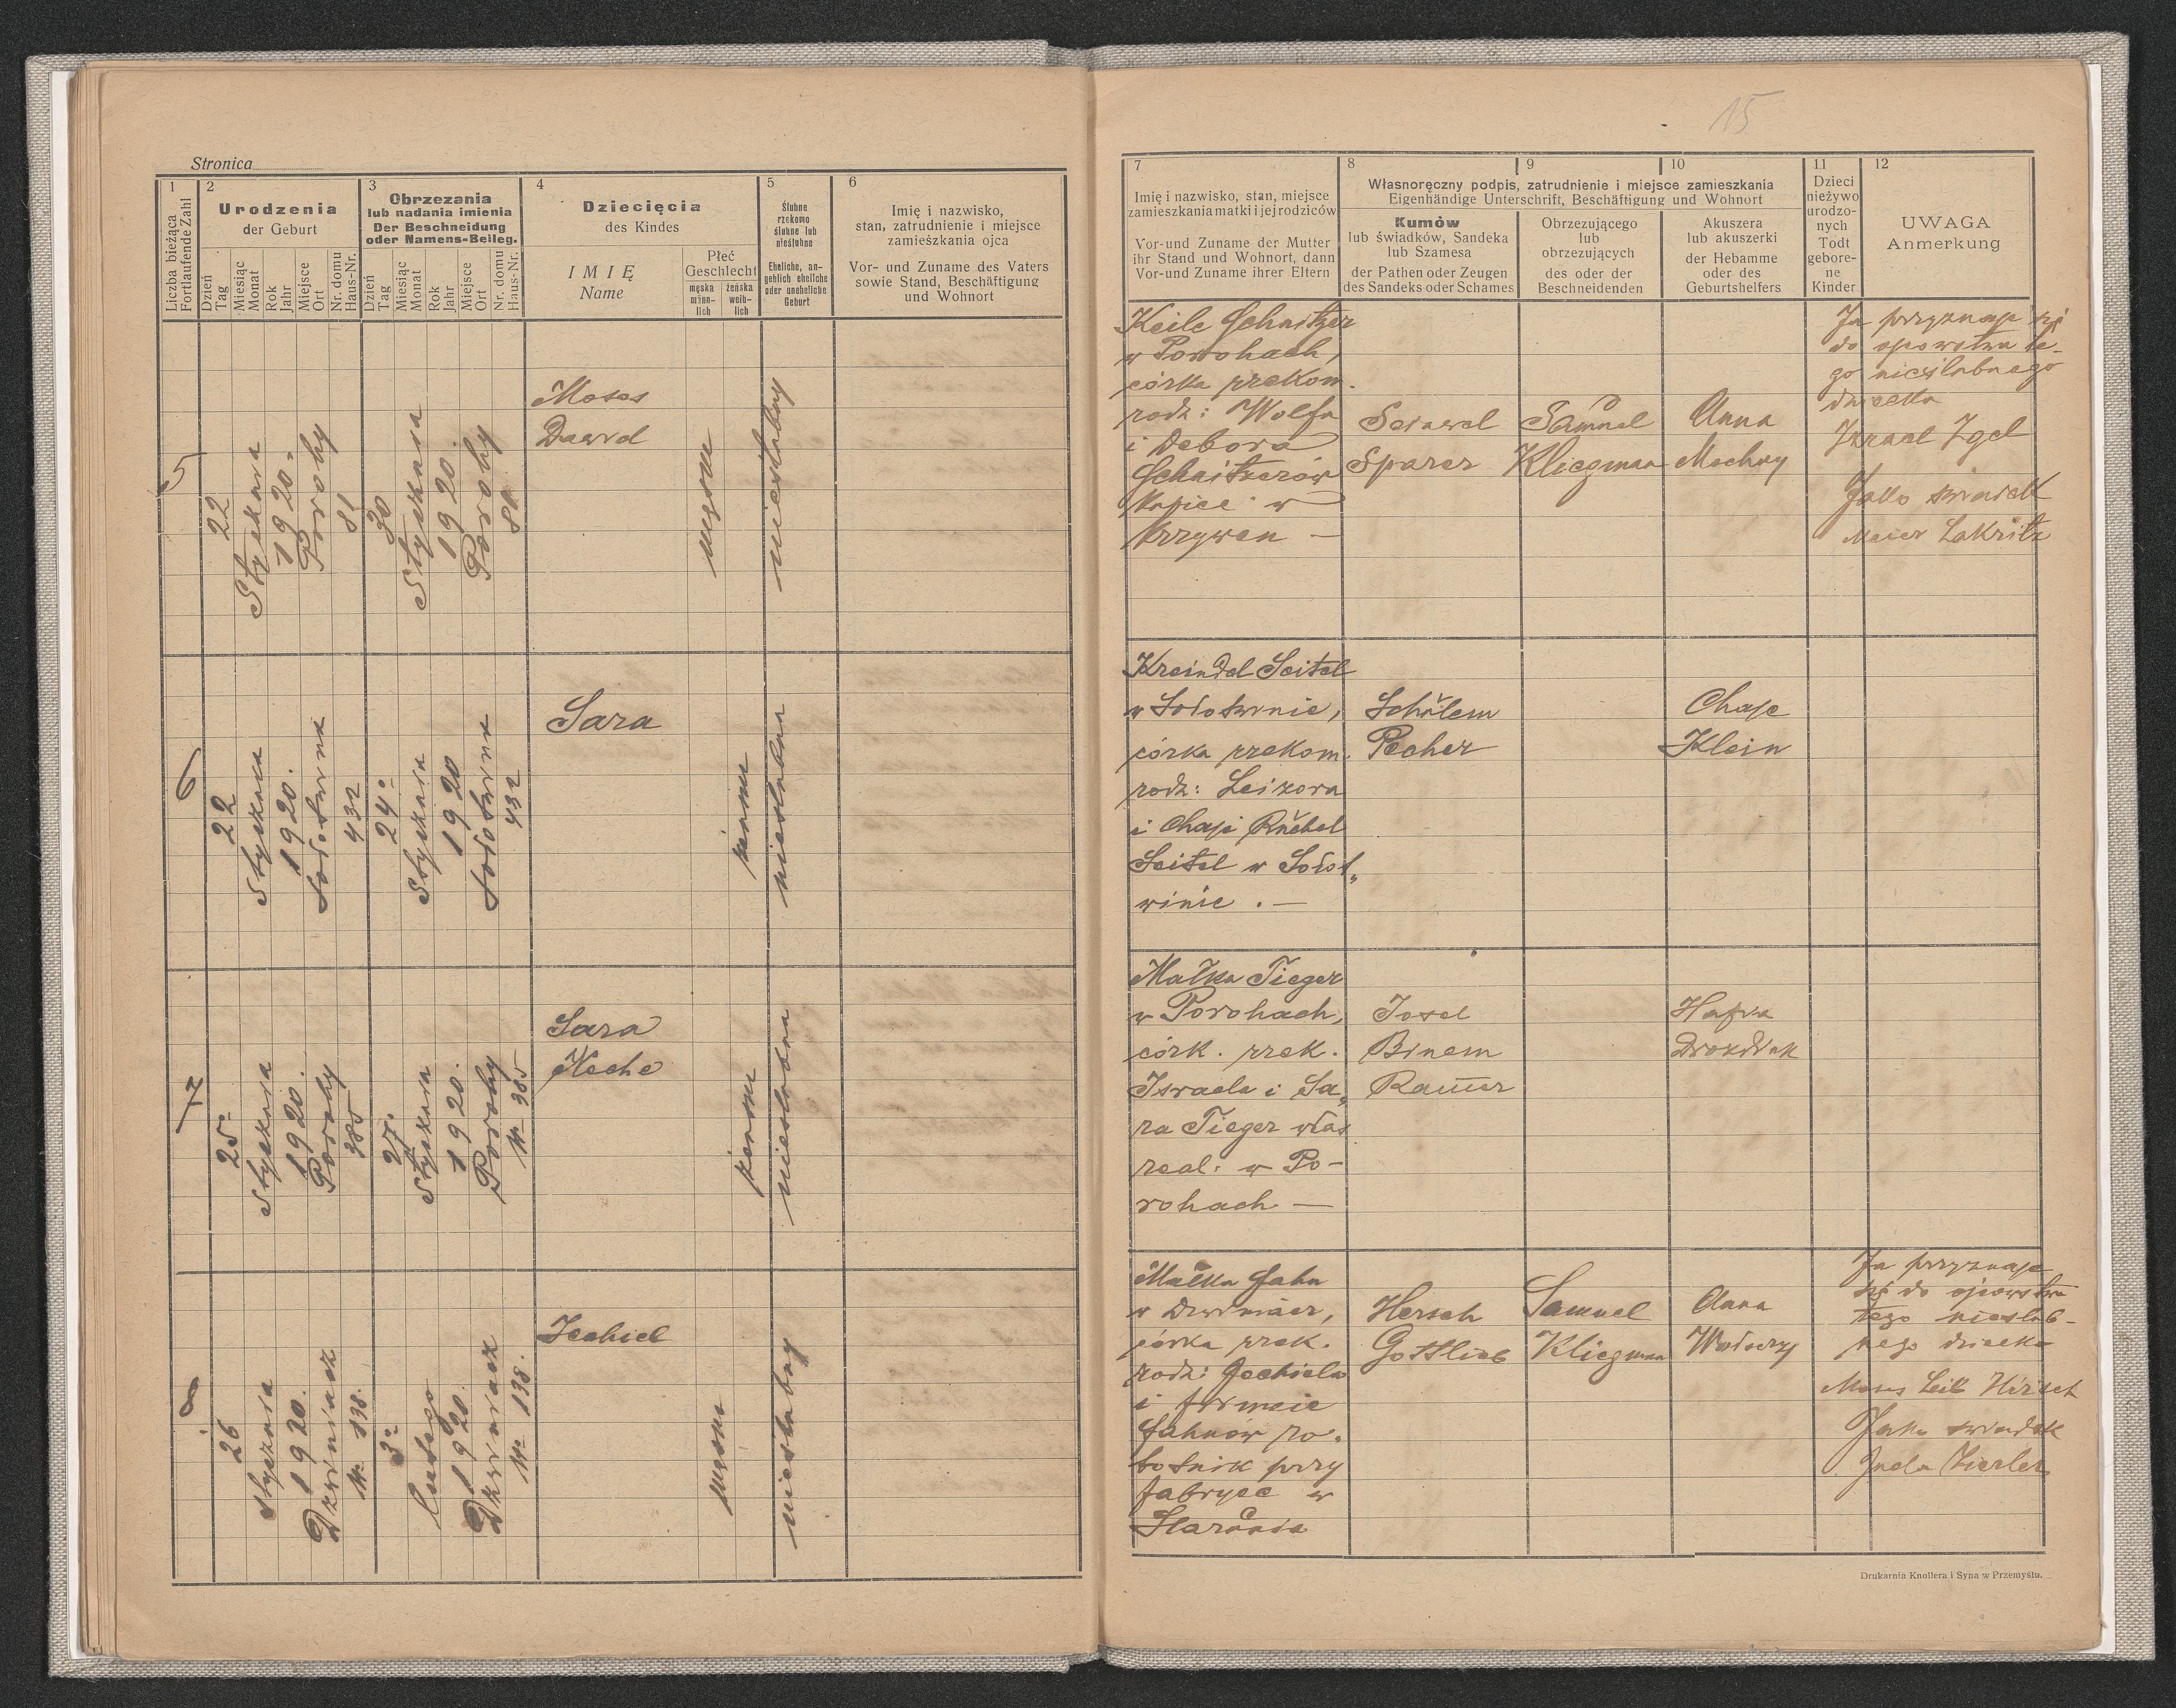 15
Stronica
1
Liczba bieżąca
Fortlaufende Zahl
2
Urodzenia
der Geburt
Dzień
Tag
Miesiąc
Monat
Rok
Jahr
Miejsce
Ort
Nr. domu
Haus-Nr.
3
Obrzezania
lub nadania imienia
Der Beschneidung
oder Namens-Beileg.
Dzień
Tag
Miesiąc
Monat
Rok
Jahr
Miejsce
Ort
Nr. domu
Haus-Nr.
4
Dziecięcia
des Kindes
IMIĘ
Name
Płeć
Geschlecht
męska
männ-
lich
żeńska
weib-
lich
5
Ślubne
rzekomo
ślubne lub
nieślubne
Eheliche, an-
geblich eheliche
oder uneheliche
Geburt
6
Imię i nazwisko,
stan, zatrudnienie i miejsce
zamieszkania ojca
Vor- und Zuname des Vaters
sowie Stand, Beschäftigung
und Wohnort
7
Imię i nazwisko, stan, miejsce
zamieszkania matki i jej rodziców
Vor-und Zuname der Mutter
ihr Stand und Wohnort, dann
Vor-und Zuname ihrer Eltern
8
9
10
Własnoręczny podpis, zatrudnienie i miejsce zamieszkania
Eigenhändige Unterschrift, Beschäftigung und Wohnort
Kumów
lub świadków, Sandeka
lub Szamesa
der Pathen oder Zeugen
des Sandeks oder Schames
Obrzezującego
lub
obrzezujących
des oder der
Beschneidenden
Akuszera
lub akuszerki
der Hebamme
oder des
Geburtshelfers
11
Dzieci
nieżywo
urodzo-
nych
Todt
gebore-
ne
Kinder
12
UWAGA
Anmerkung
5
22
Stycznia
1920.
Porohy
81
30
Stycznia
1920.
Porohy
81
Moses
Dawid
męska
nieślubny
Keile Schnitzer
w Porohach,
córka rzekom.
rodz: Wolfa
i Debora
Schnitzerów
w
Krzywen —
Sparer
Samuel
Kliegman
Anna
Mochny
Ja przyznaję się
do ojcowstwa te-
go nieślubnego
dziecka
Izrael Igel
Jako świadek
Meier Lakritz
6
22
Stycznia
1920.
Sołotwina
432
24
Stycznia
1920
Sołotwina
432
Sara
żeńska
nieślubna
Kreindel Seitel
w Sołotwinie,
córka rzekom.
rodz: Leizora
i Chaji Ruchel
Seitel w Sołot„
winie . —
Schulem
Pecher
Chaje
Klein
7
25
Stycznia
1920.
Porohy
385
27.
Stycznia
1920.
Porohy
Nr 385
Sara
Neche
żeńska
nieślubna
Malka Tieger
w Porohach,
córk. rzek.
Israela i Sa„
ra Tieger właś
real: w Po-
rohach —
Josel
Binem
Rauer
Hafia
Drozdiak
8
26
stycznia
1920.
Dzwiniacz
Nr 138.
3
lutego
1920.
Dzwiniacz
Nr 138.
Jechiel
męska
nieślubny
Malka Hahn
w Dzwiniacz,
córka rzek.
rodz: Jechiela
i
Hahnów ro-
botnik przy
fabryce w
Hersch
Gottlieb
Samuel
Kliegman
Anna
Ja przyznaję
się do ojcowstwa
tego nieślub-
nego dziecka
Moses Leib Hirsch
Jako świadek
Drukarnia Knollera i Syna w Przemyślu.